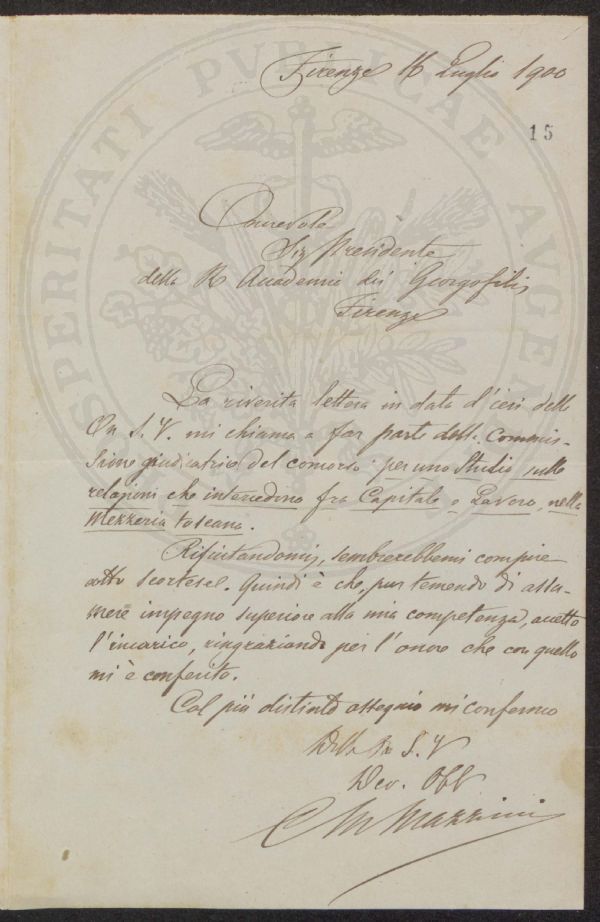 Firenze 16 Luglio 1900
15
Onorevole
Sig Presidente
della R Accademia dei Georgofili
Firenze
La riverita lettera in data d'ieri della
On S. V. mi chiama a far parte della Commis-
sione giudicatrice del concorso per uno Studio sulle
relazioni che intercedono fra Capitale e Lavoro, nella
Mezzeria toscana.
Rifiutandomi, sembrerebbemi compire
atto scortese. Quindi è che, pur temendo di assu-
mere impegno superiore alla mia competenza, accetto
l'incarico, ringraziando per l'onore che con quello
mi è conferito.
Col più distinto ossequio mi confermo
Della S. V
Dev. Obb
Mazzini
PROSPERITATI PVBLICAE AVGENDAE